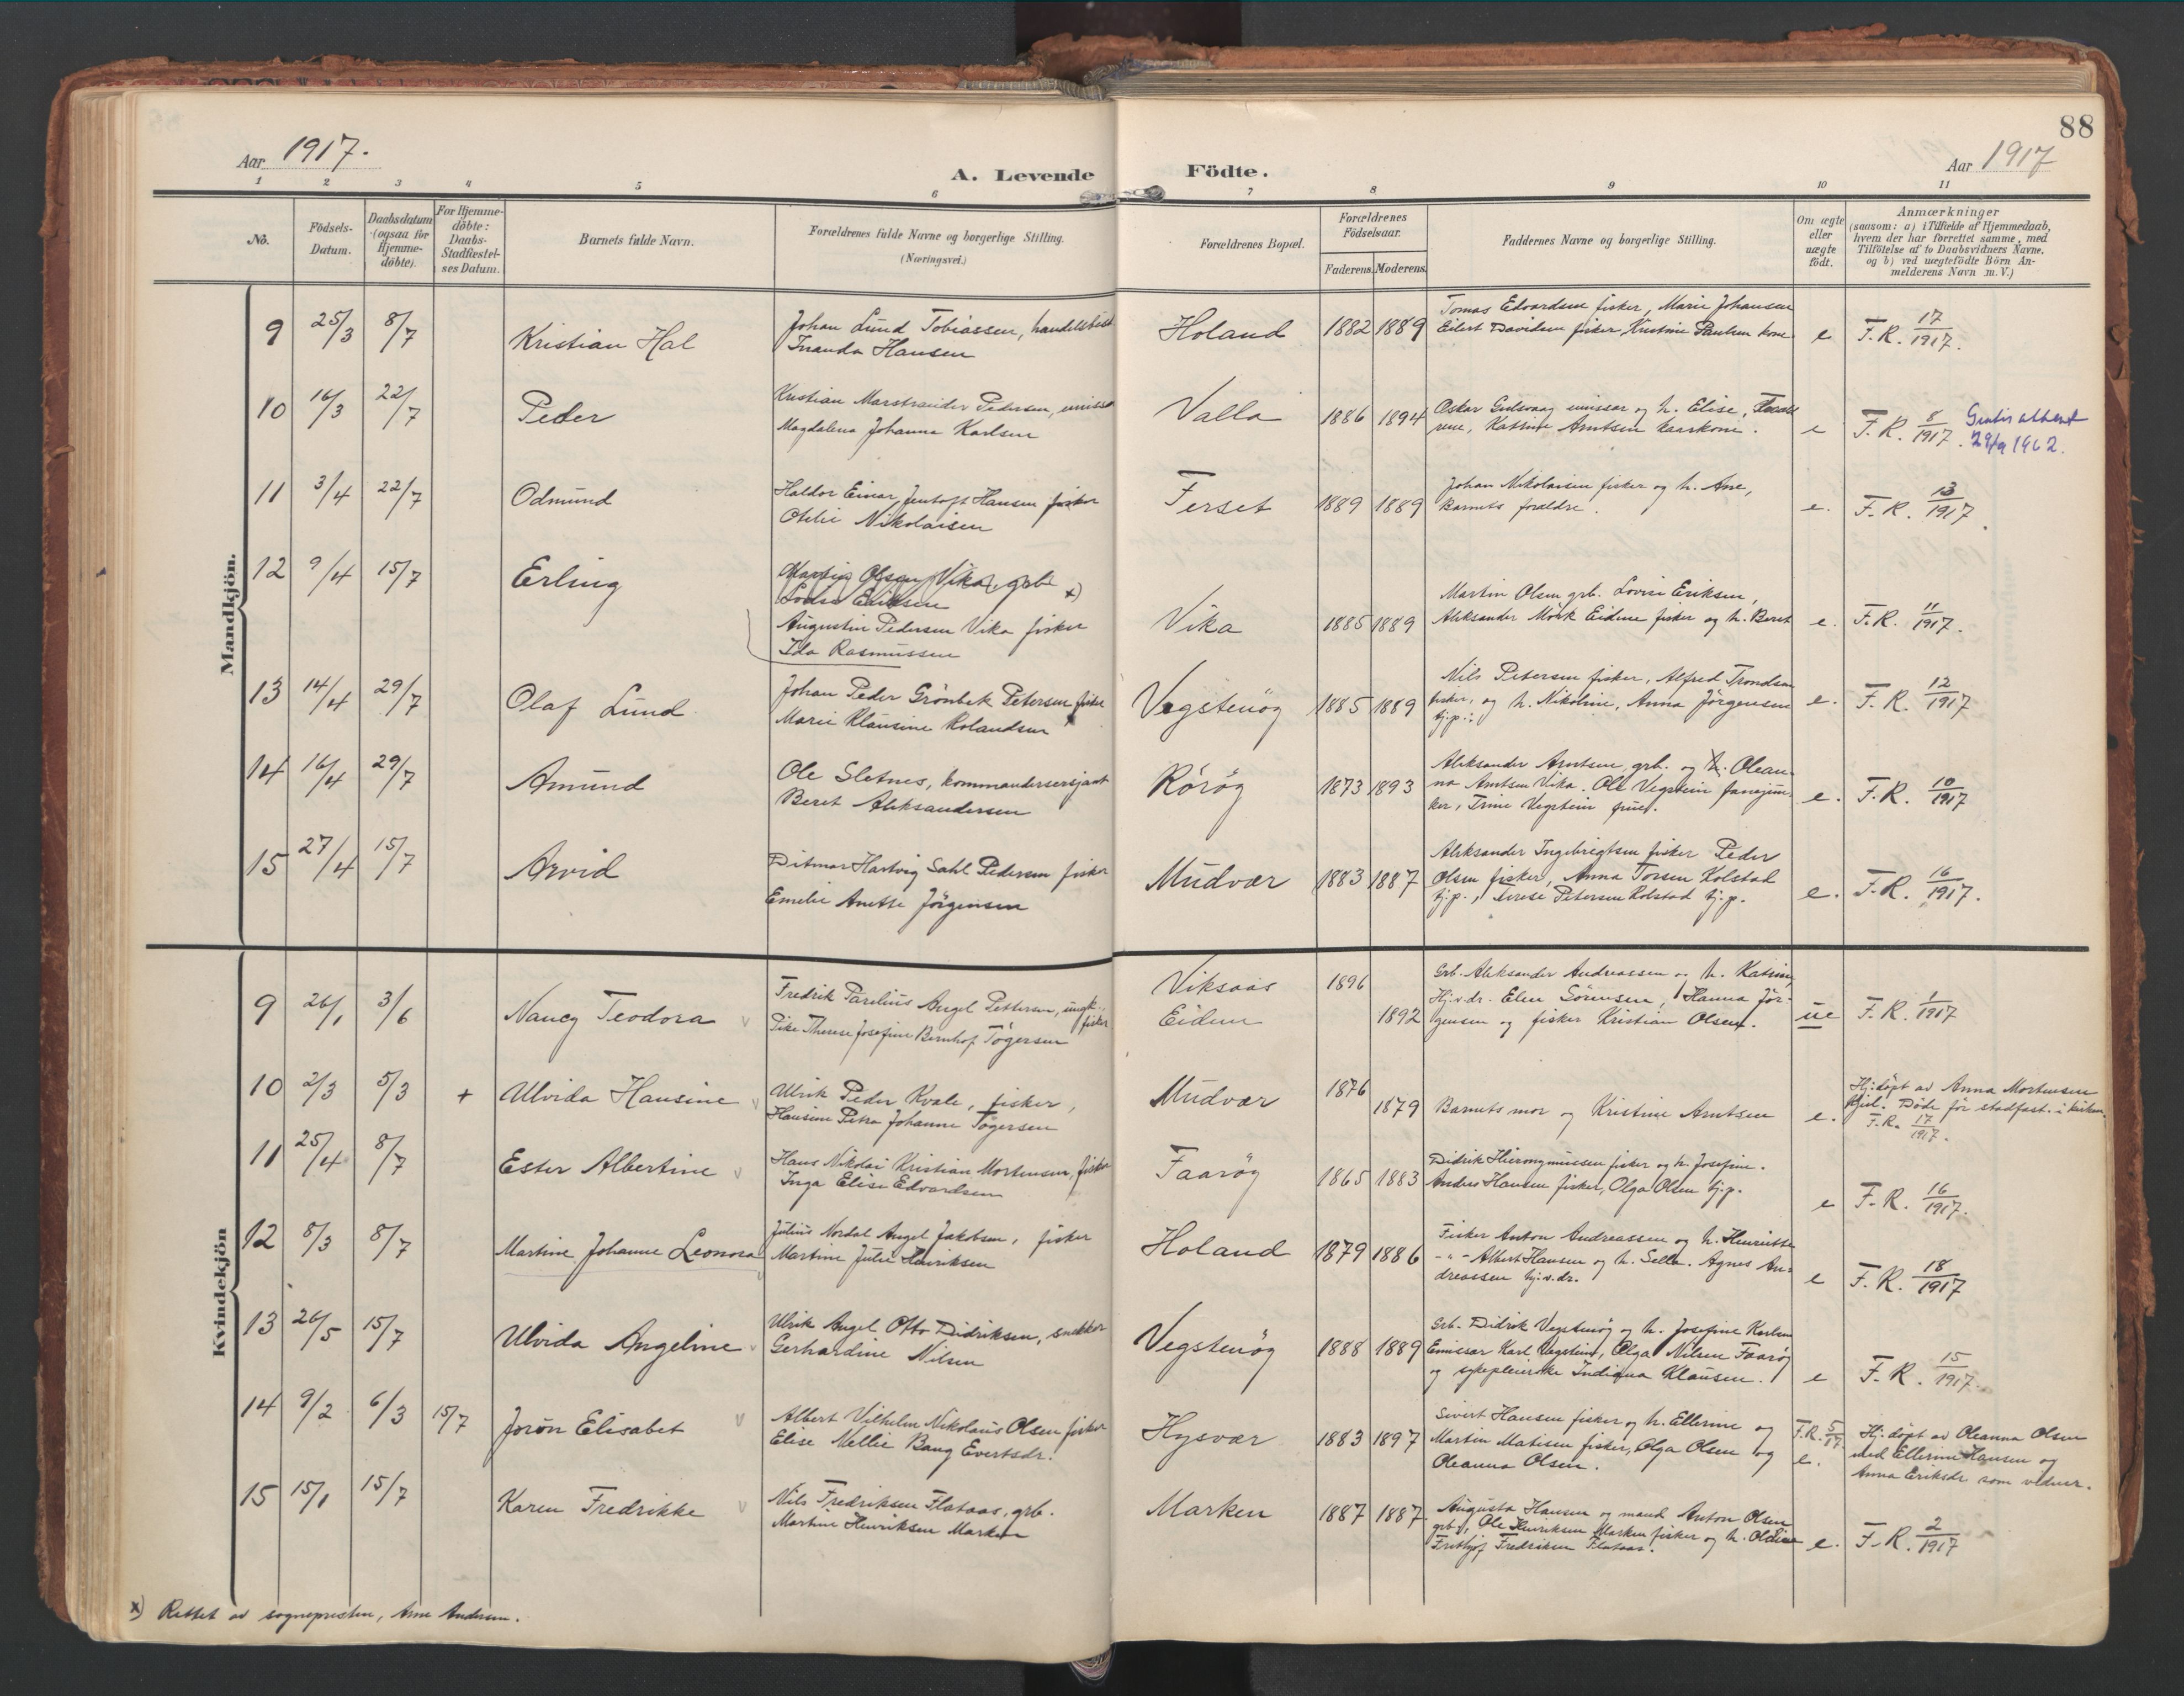 88
Aar 1917.
Aar 1917
A. Levende Födte.
1 2 3 4 5 6 7 8 9 10 11
No.
Födsels-Datum.
Daabsdatum (ogsaa for Hjemme-döbte).
For Hjemme-döbte: Daabs-Stadfæstel-ses Datum.
Barnets fulde Navn.
Forældrenes fulde Navne og borgerlige Stilling. (Næringsvei.)
Forældrenes Bopæl.
Forældrenes Födselsaar.
Faderens. Moderens.
Faddernes Navne og borgerlige Stilling.
Om ægte eller uægte födt.
Anmærkninger
(saasom: a) i Tilfælde af Hjemmedaab, hvem der har forrettet samme, med Tilföielse af to Daabsvidners Navne, og b) ved uægtefödte Börn An-melderens Navn m. V.)
Mandkjön.
9 25/3 8/7 Kristian Hal
Johan Lund Tobiassen,
Inanda Hansen
Holand 1882 1889
Tomas Edvardsen fisker, Marie Johansen
Eilert Davidsen fisker, Kristine Paulsen kone
e F.R. 17/1917.
10 16/3 22/7 Peder
Kristian Marstrander Pedersen,
Magdalena Johanna Karlsen
Valla 1886 1894
Oskar emissær og h. Elise,
Katrine Arntsen kaarkone.
e F.R. 8/1917. attest
29/9 1962.
11 3/4 22/7 Odmund
Haldor Einar Jentoft Hansen fisker
Otelie Nikolaisen
Ferset 1889 1889
Johan Nikolaisen fisker og h. Ane,
Barnets forældre.
e. F.R. 13/1917.
12 9/4 15/7 Erling
Martin Olsen Vika, grb x)
Lovise Eriksen
Augustin Pedersen Vika fisker
Ida Rasmussen
Vika 1885 1889
Martin Olsen grb. Lovise Eriksen,
Aleksander Mörk Eidem fisker og h. Beret
e. F.R. 11/1917.
13 14/4 29/7 Olaf Lund
Johan Peder Grönbek Petersen fisker
Marie Klausine Rolandsen
Vegstenöy 1885 1889
Nils Petersen fisker, Alfred Trondsen
fisker, og h. Nikoline, Anna Jörgensen
tj.p.
e. F.R. 12/1917
14 16/4 29/7 Amund
Ole Sletnes, kommandersersjant
Beret Aleksandersen
Röröy 1873 1893
Aleksander Arntsen, grb. og h. Olean-
na Arntsen Vika. Ole Vegstein fanejun-
ker, Trine Vegstein frue.
e. F.R. 10/1917
15 27/4 15/7 Arvid
Ditmar Hartvig Sahl Pedersen fisker
Emelie Anette Jörgensen
Mudvær 1883 1887
Aleksander Ingebrigtsen fisker Peder
Olsen fisker, Anna Torsen Kolstad
tj.p., Terese Petersen Rolstad tj.p.
e. F.R. 16/1917.
Kvindekjön
9 26/1 3/6 Nancy Teodora
Fredrik Parelius Angel Pettersen, ungk. fisker
Pike Therese Josefine Bernhof Tögersen
Viksaas 1896
Eidem 1892
Grb. Aleksander Andreassen og h. Katrine,
Hj.v.dr. Elen Sörensen, Hanna Jör-
gensen og fisker Kristian Olsen.
ue F.R. 1/1917
10 2/3 5/3 + Ulvida Hansine
Ulrik Peder Kvale, fisker,
Hansine Petra Johanne Tögersen
Mudvær 1876 1879
Barnets mor og Kristine Arntsen
e. Hj: döpt av Anna Mortensen
Död för stadfæst. i kirken.
F.R. 17/1917.
11 25/4 8/7 Ester Albertine
Hans Nikolai Kristian Mortensen, fisker
Inga Elise Edvardsen
Faaröy 1865 1883
Didrik Hieronymussen fisker og h. Josefine.
Anders Hansen fisker, Olga Olsen tj.p.
e F.R. 16/1917.
12 8/3 8/7 Martine Johanne Leonora
Julius Nordal Angel Jakobsen, fisker
Martine Julie Henriksen
Holand 1879 1886
Fisker Anton Andreassen og h. Henriette
-"- Albert Hansen og h. Sella. Agnes An-
dreassen hj.v.dr.
e F.R. 18/1917
13 26/5 15/7 Ulvida Angeline
Ulrik Angel Otto Didriksen, snekker
Gerhardine Nilsen
Vegstenöy 1888 1889
Grb. Didrik Vegstenöy og h. Josefine Karlsen
Emissær Karl Vegstein, Olga Nilsen Faaröy
og sykepleierske Indiana Klausen.
e F.R. 15/1917.
14 9/2 6/3 15/7 Jorön Elisabet
Albert Vilhelm Nikolaus Olsen fisker
Elise Mellie Bang Evertsdr.
Hysvær 1883 1897
Sivert Hansen fisker og h. Ellerine og
Martin Matisen fisker, Olga Olsen og
Oleanna Olsen.
F.R. 5/17. e.
Hj. döpt av Oleanna Olsen
med Ellerine Hansen og
Anna Eriksdr. som vidner.
15 15/1 15/7 Karen Fredrikke
Nils Fredriksen Flataas, grb.
Martine Henriksen Marken
Marken 1887 1887
Augusta Hansen og mand Anton Olsen
grb., Ole Henriksen Marken fisker og h. Oldine
Frithjof Fredriksen Flataas.
e. F.R. 2/1917
x) Rettet av sognepresten, Arne Andersen.